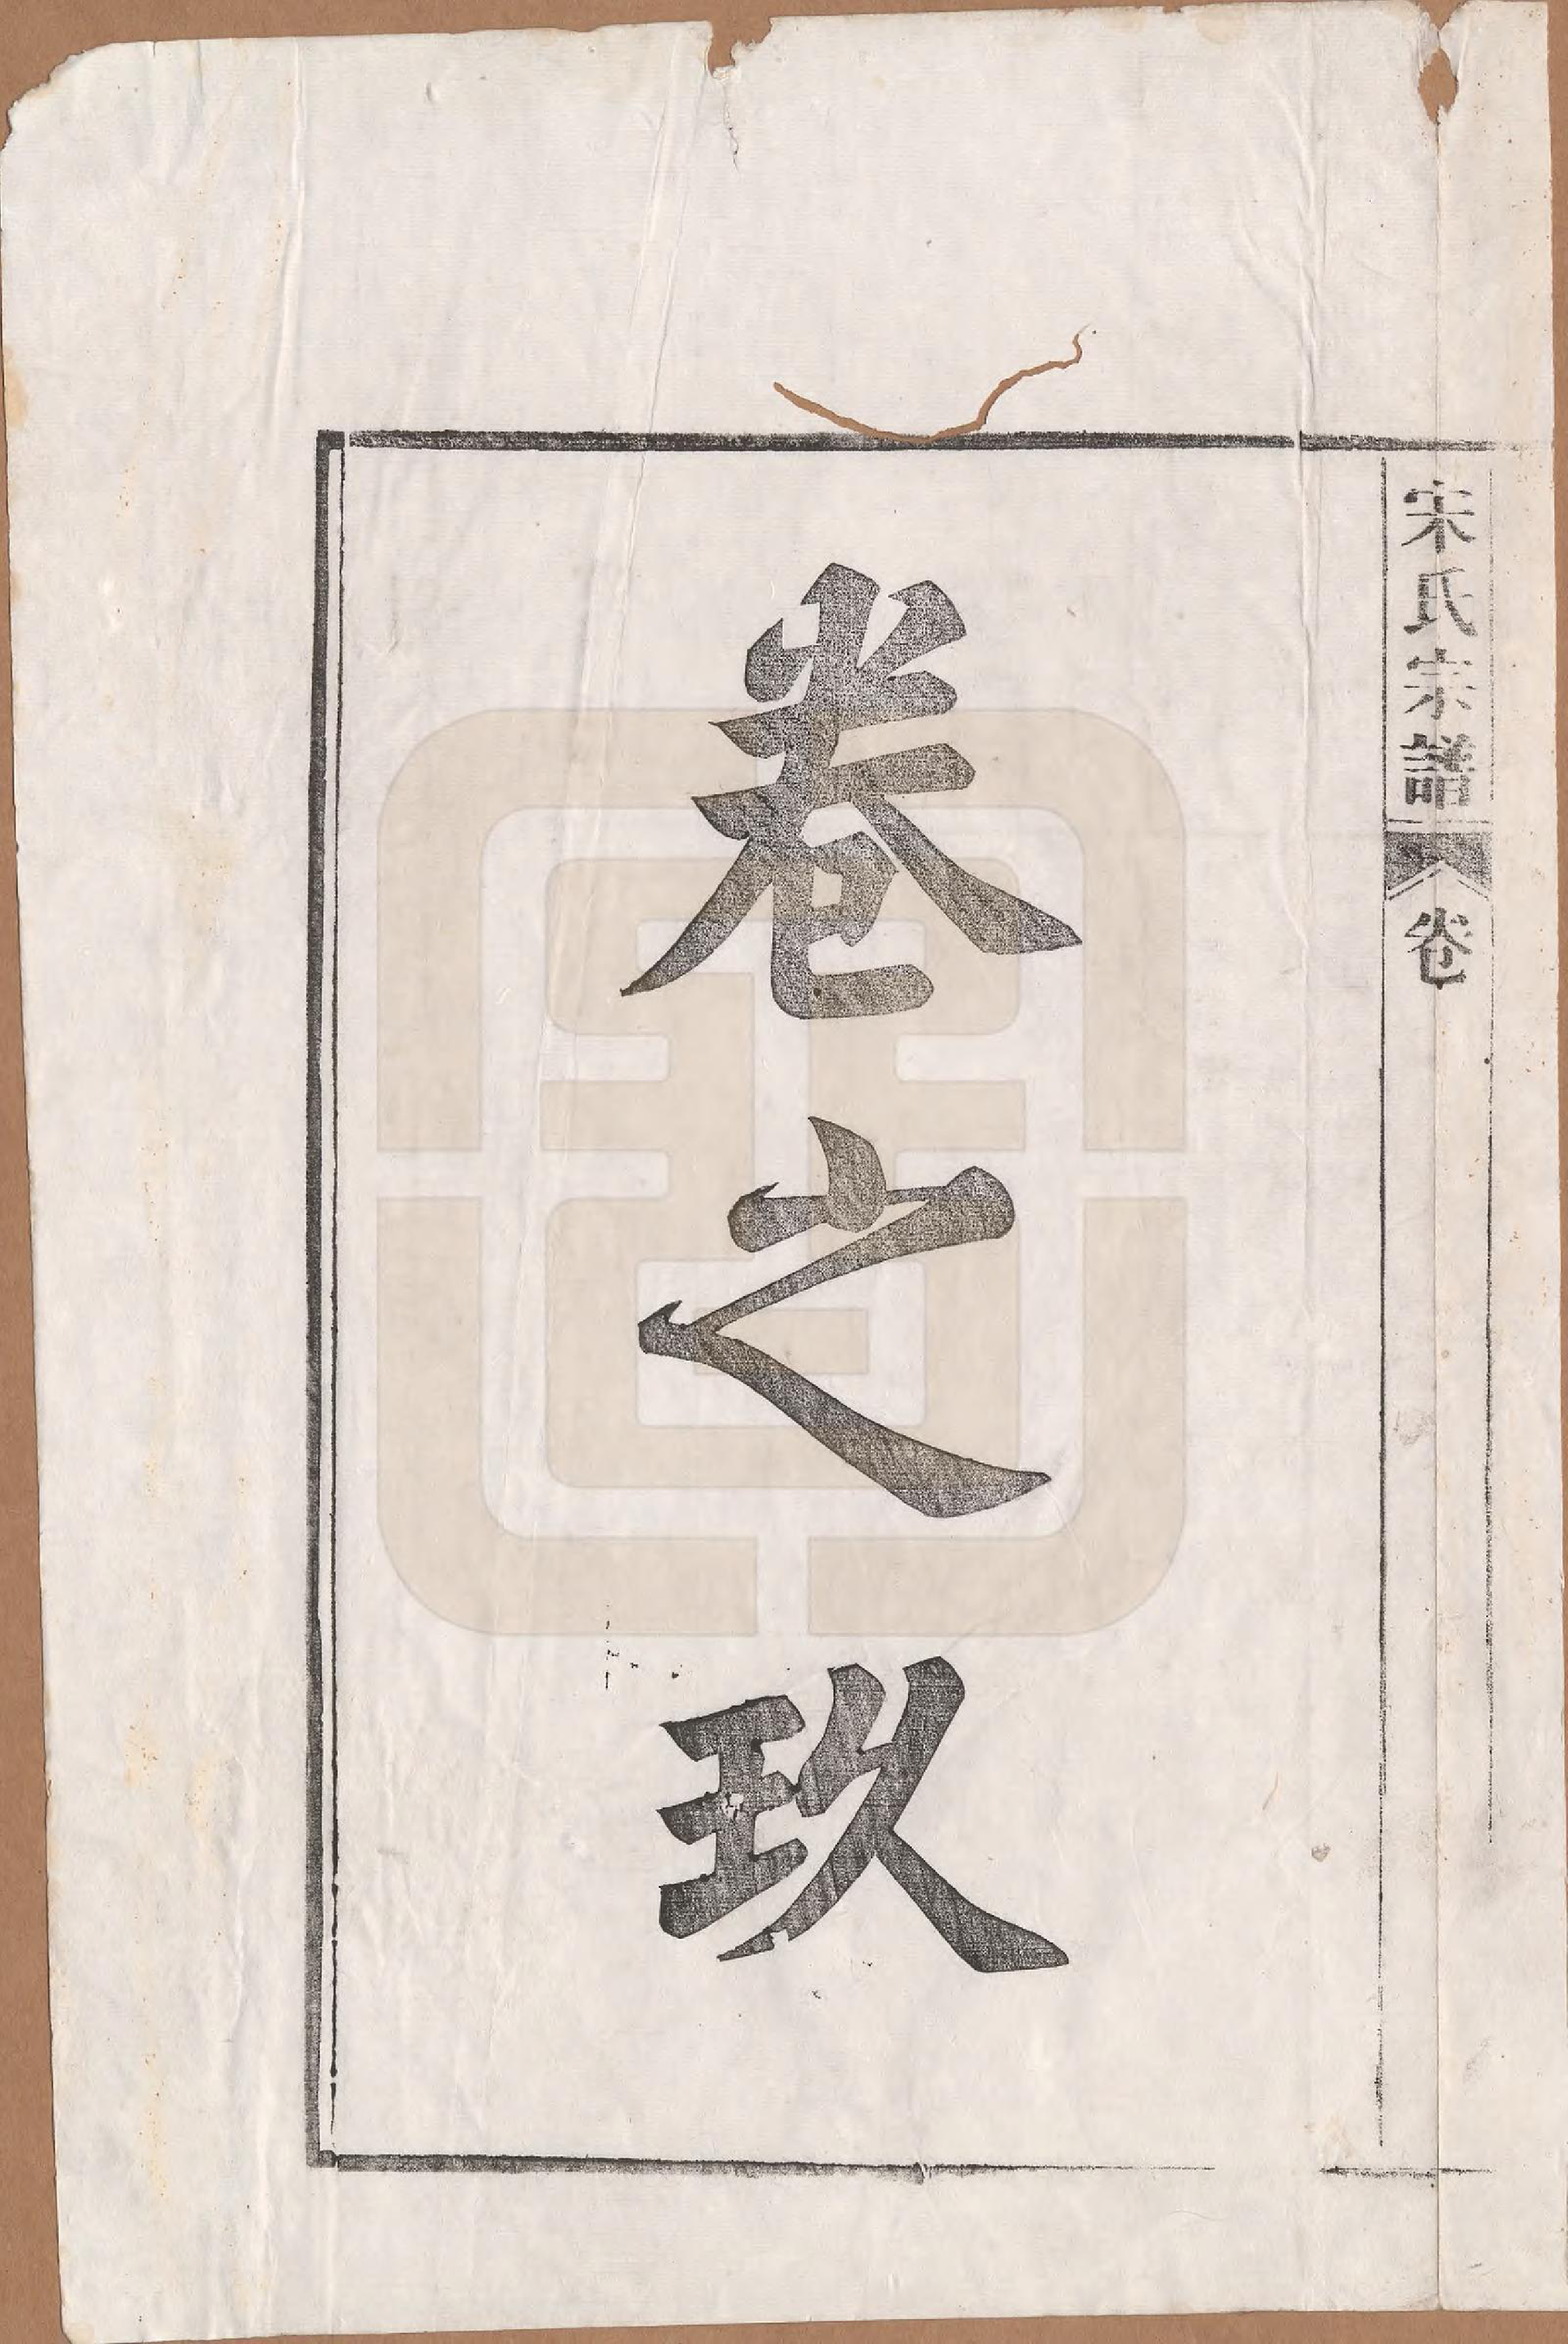 宋氏宗譜
卷
卷之玖